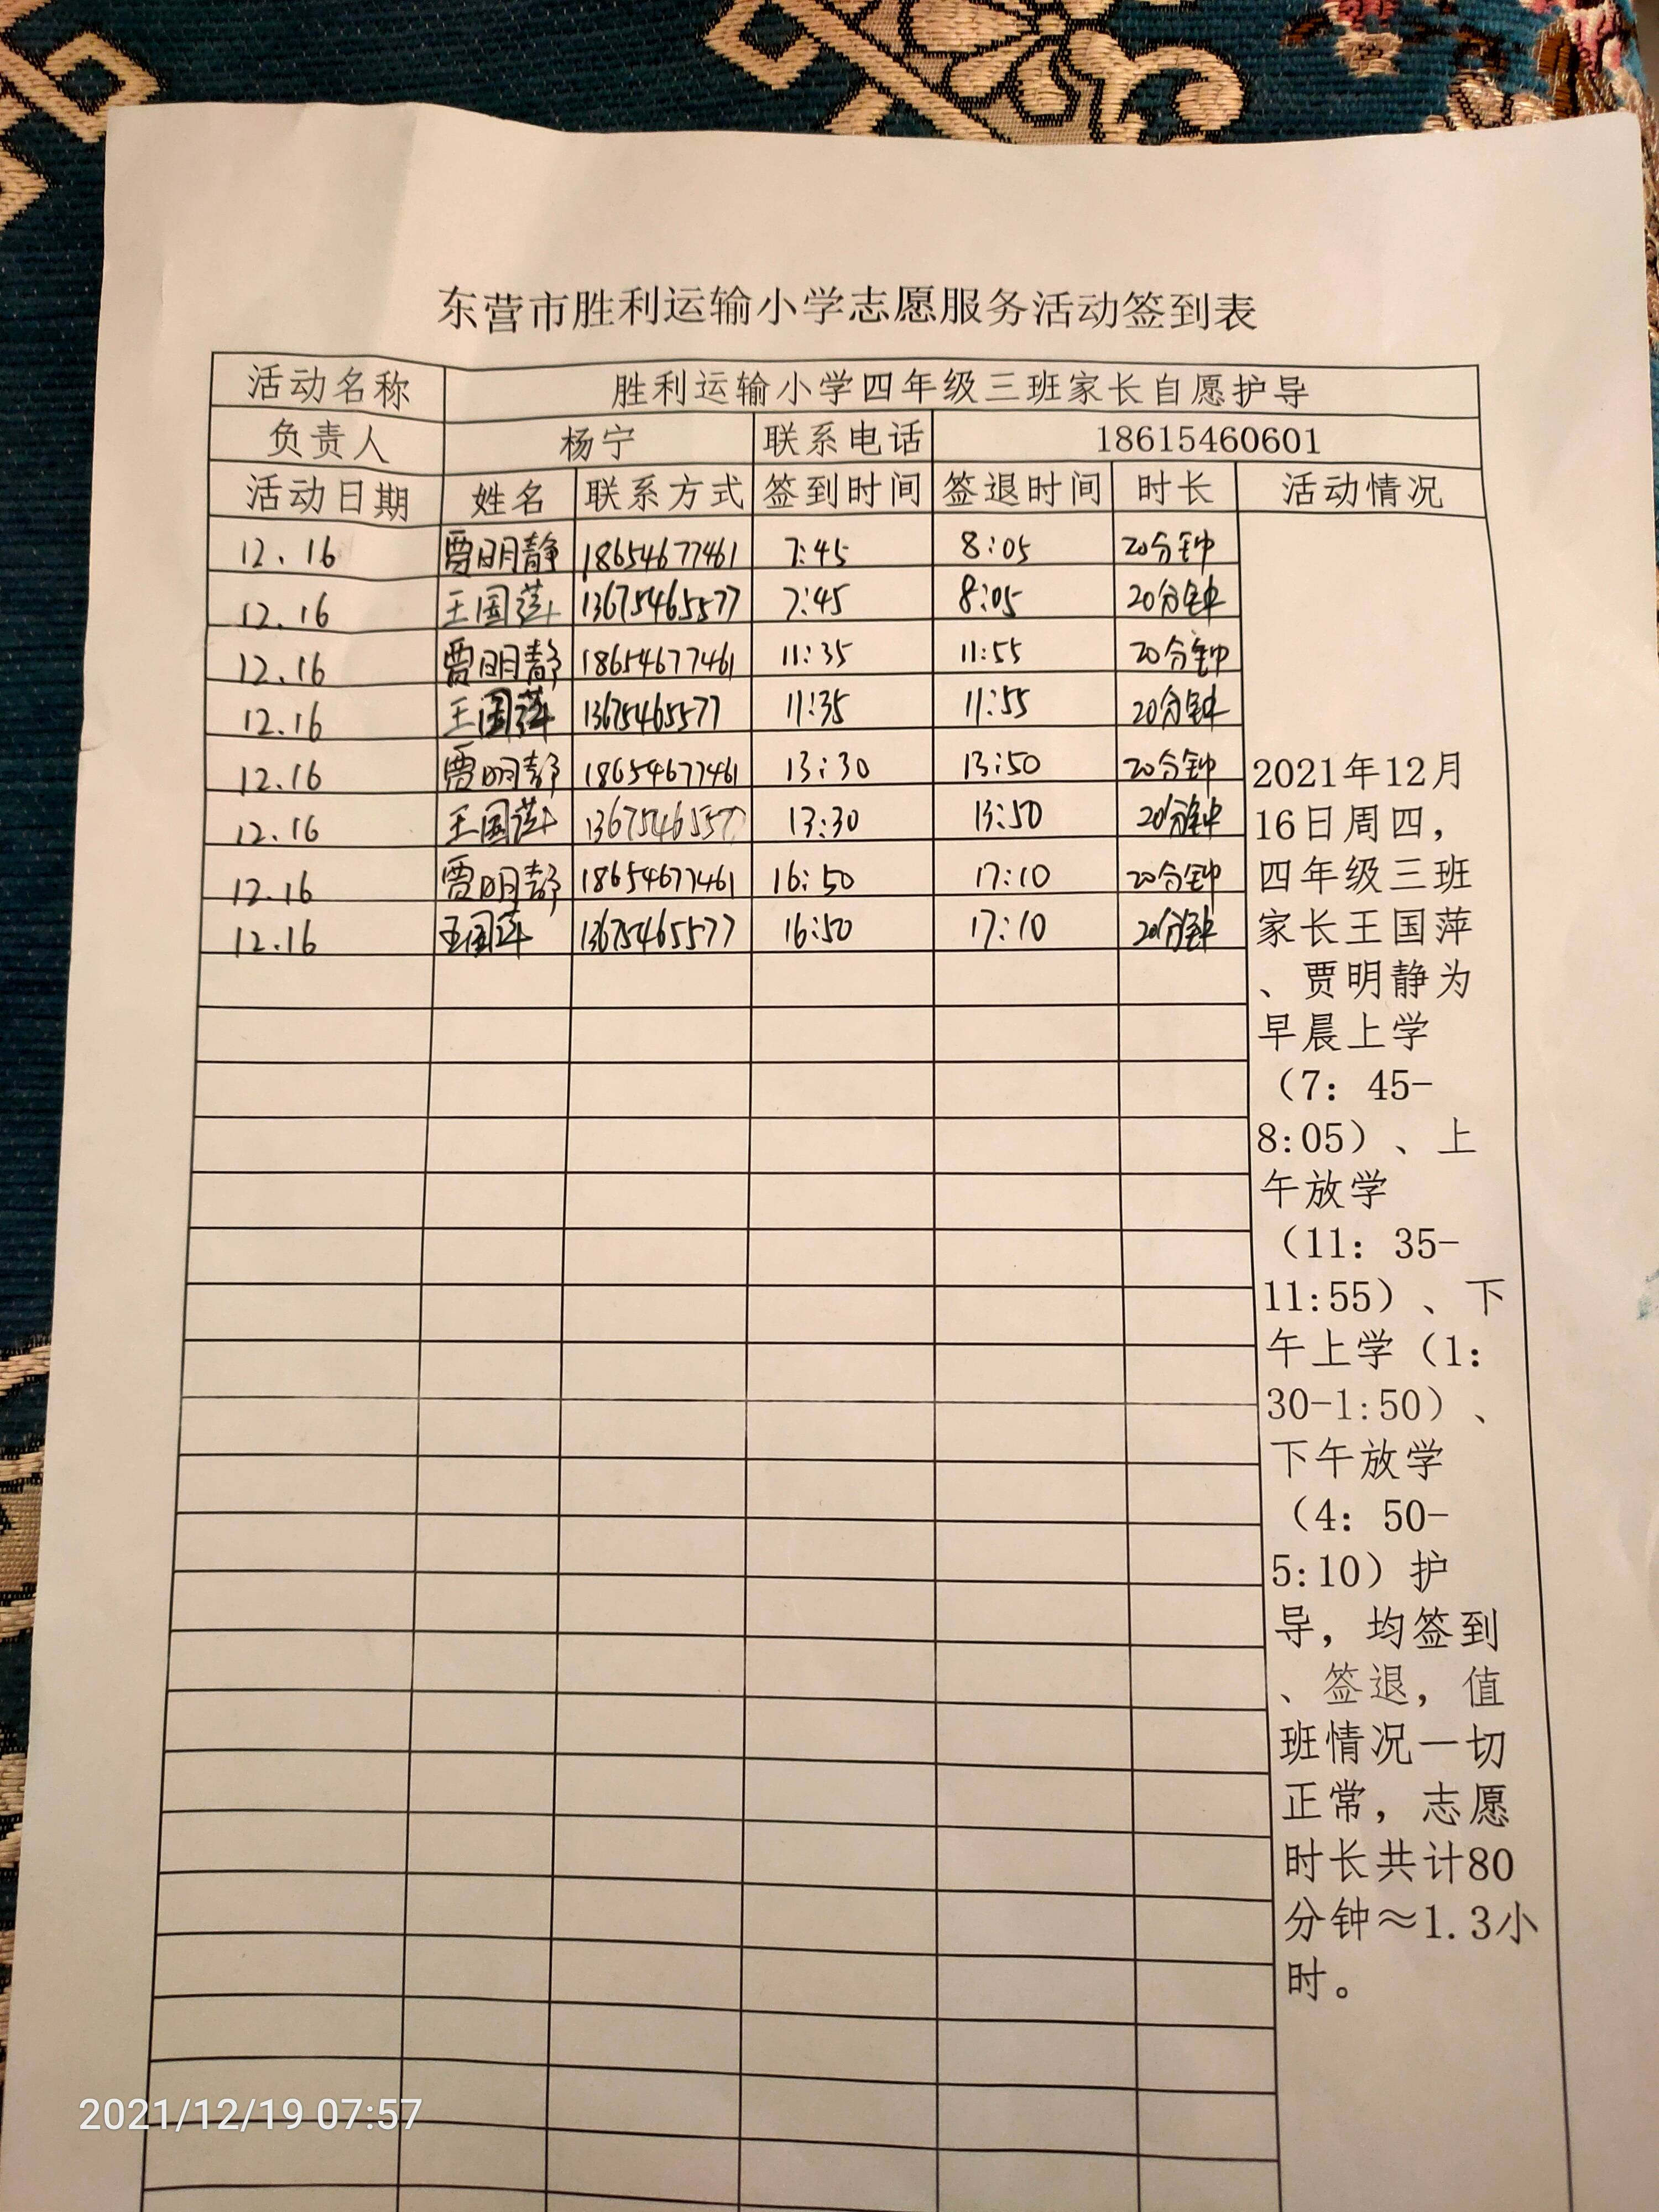 东营市胜利运输小学志愿服务活动签到表
活动名称 胜利运输小学四年级三班家长自愿护导
负责人 杨宁 联系电话 18615460601
活动日期 姓名 联系方式 签到时间 签退时间 时长 活动情况
12.16 贾明静 18654677461 7:45 8:05 20分钟
12.16 王国萍 13675465577 7:45 8:05 20分钟
12.16 贾明静 18654677461 11:35 11:55 20分钟
12.16 王国萍 13675465577 11:35 11:55 20分钟
12.16 贾明静 18654677461 13:30 13:50 20分钟
12.16 王国萍 13675465577 13:30 13:50 20分钟
12.16 贾明静 18654677461 16:50 17:10 20分钟
12.16 王国萍 13675465577 16:50 17:10 20分钟
2021年12月
16日周四，
四年级三班
家长王国萍
、贾明静为
早晨上学
（7：45-
8:05）、上
午放学
（11：35-
11:55）、下
午上学（1：
30-1:50）、
下午放学
（4：50-
5:10）护
导，均签到
、签退，值
班情况一切
正常，志愿
时长共计80
分钟≈1.3小
时。
2021/12/19 07:57